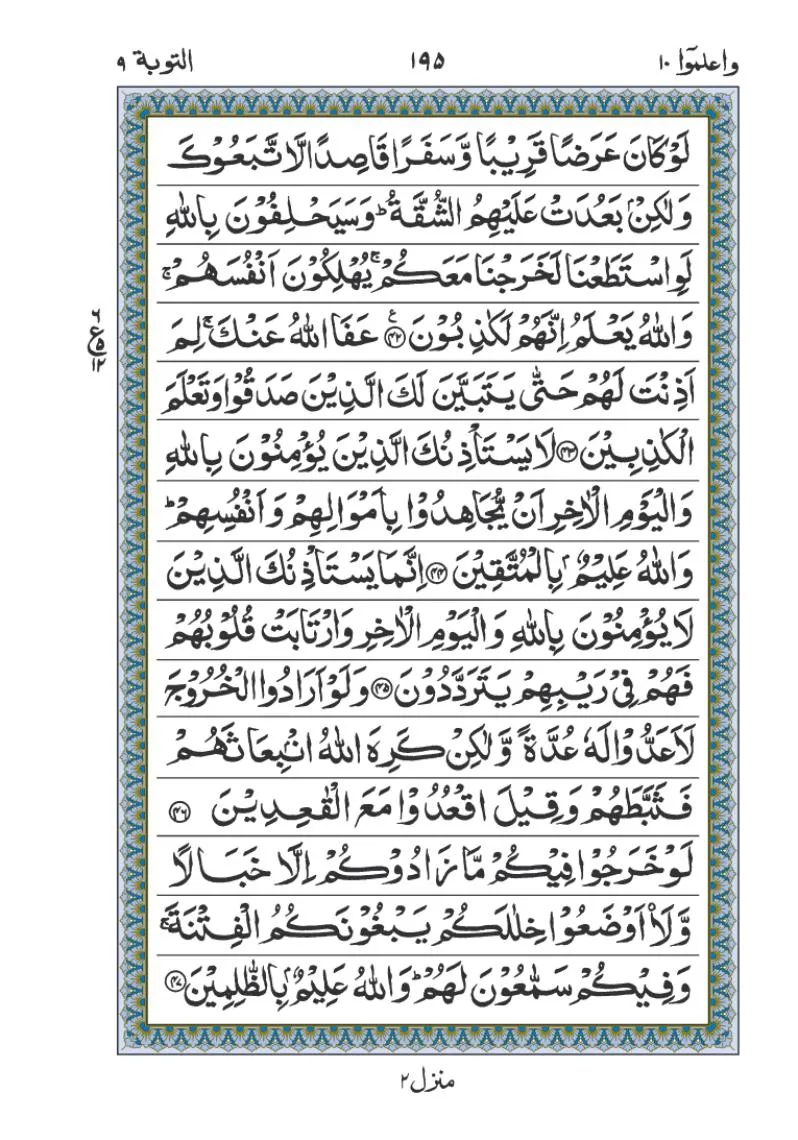 واعلموٓا ١٠ ١٩٥ التوبة ٩
لَوْ كَانَ عَرَضًا قَرِيْبًا وَّسَفَرًا قَاصِدًا لَّاتَّبَعُوْكَ
وَلٰكِنْۢ بَعُدَتْ عَلَيْهِمُ الشُّقَّةُ ؕ وَسَيَحْلِفُوْنَ بِاللّٰهِ
لَوِ اسْتَطَعْنَا لَخَرَجْنَا مَعَكُمْ ۚ يُهْلِكُوْنَ اَنْفُسَهُمْ ۚ
وَاللّٰهُ يَعْلَمُ اِنَّهُمْ لَكٰذِبُوْنَ ﴿۴۲﴾ ع عَفَا اللّٰهُ عَنْكَ ۚ لِمَ
اَذِنْتَ لَهُمْ حَتّٰى يَتَبَيَّنَ لَكَ الَّذِيْنَ صَدَقُوْا وَتَعْلَمَ
الْكٰذِبِيْنَ ﴿۴۳﴾ لَا يَسْتَاْذِنُكَ الَّذِيْنَ يُؤْمِنُوْنَ بِاللّٰهِ
وَالْيَوْمِ الْاٰخِرِ اَنْ يُّجَاهِدُوْا بِاَمْوَالِهِمْ وَاَنْفُسِهِمْ ؕ
وَاللّٰهُ عَلِيْمٌۢ بِالْمُتَّقِيْنَ ﴿۴۴﴾ اِنَّمَا يَسْتَاْذِنُكَ الَّذِيْنَ
لَا يُؤْمِنُوْنَ بِاللّٰهِ وَالْيَوْمِ الْاٰخِرِ وَارْتَابَتْ قُلُوْبُهُمْ
فَهُمْ فِيْ رَيْبِهِمْ يَتَرَدَّدُوْنَ ﴿۴۵﴾ وَلَوْ اَرَادُوا الْخُرُوْجَ
لَاَعَدُّوْا لَهٗ عُدَّةً وَّلٰكِنْ كَرِهَ اللّٰهُ انْۢبِعَاثَهُمْ
فَثَبَّطَهُمْ وَقِيْلَ اقْعُدُوْا مَعَ الْقٰعِدِيْنَ ﴿۴۶﴾
لَوْ خَرَجُوْا فِيْكُمْ مَّا زَادُوْكُمْ اِلَّا خَبَالًا
وَّلَا۟اَوْضَعُوْا خِلٰلَكُمْ يَبْغُوْنَكُمُ الْفِتْنَةَ ۚ
وَفِيْكُمْ سَمّٰعُوْنَ لَهُمْ ؕ وَاللّٰهُ عَلِيْمٌۢ بِالظّٰلِمِيْنَ ﴿۴۷﴾
منزل ٢